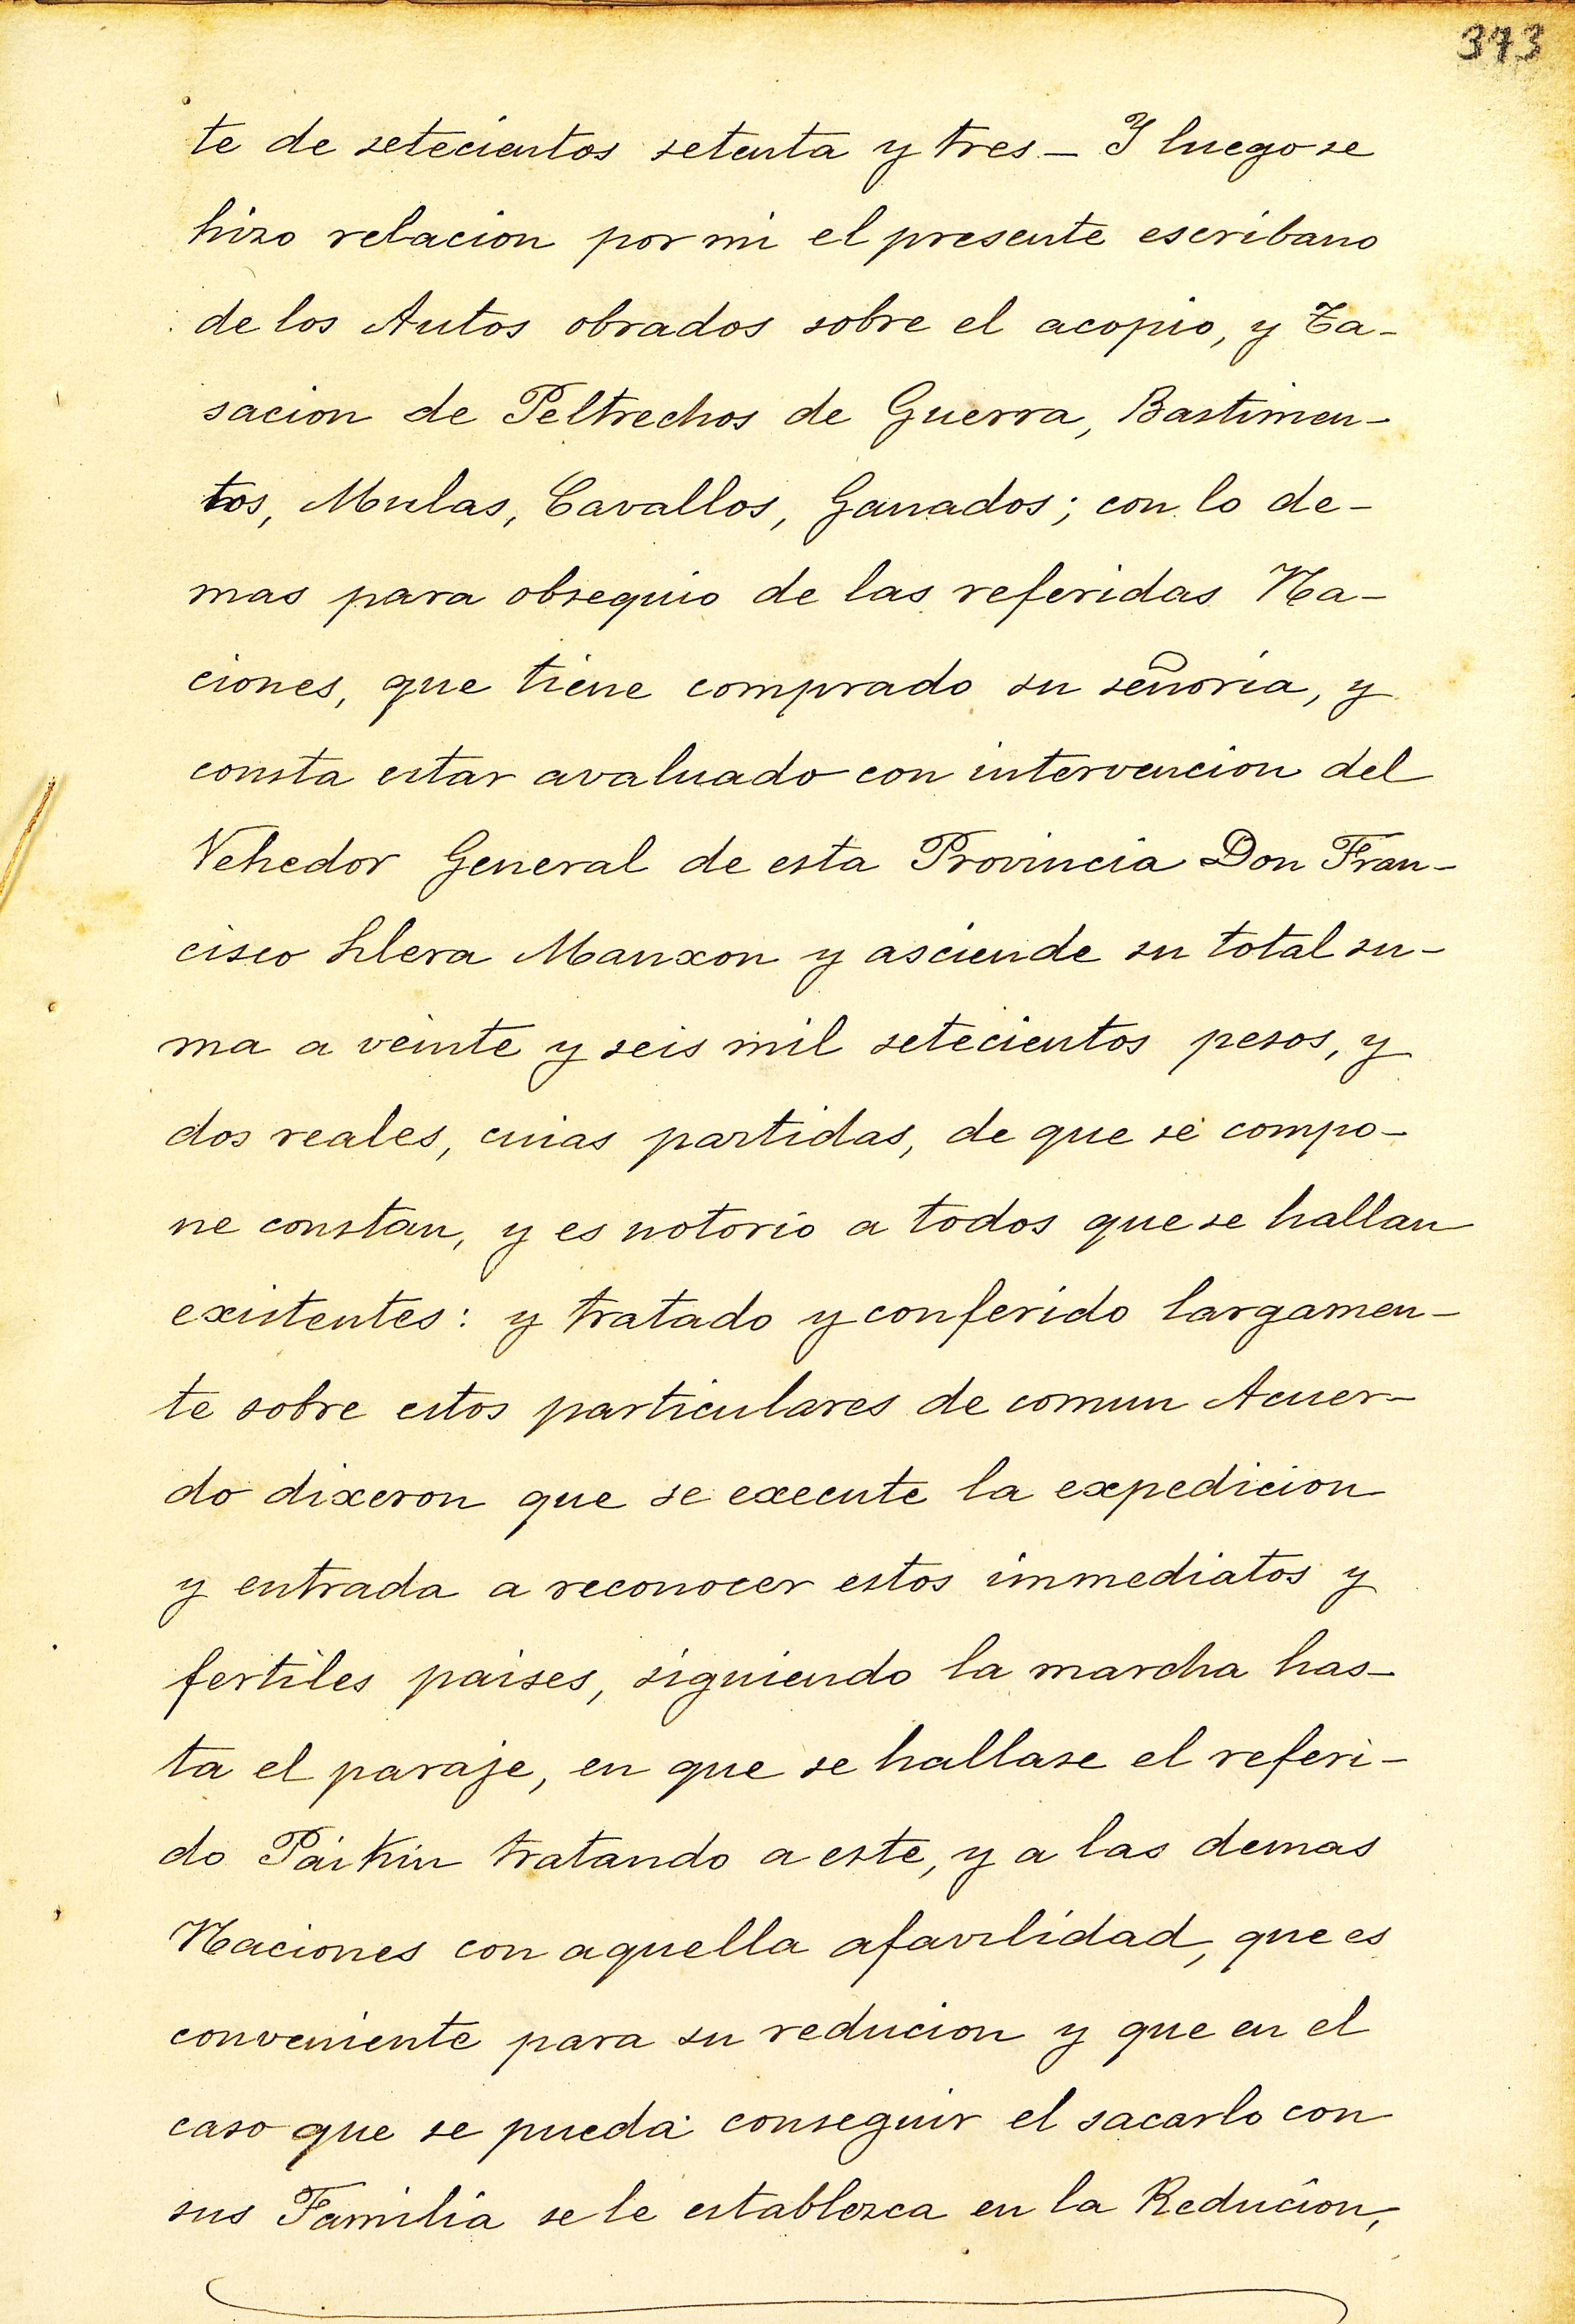 373
te de setecientos setenta y tres_ Y luego se
hizo relacion por mi el presente escribano
de los Autos obrados sobre el acopio, y Ta-
sacion de Peltrechos de Guerra, Bastimen-
tos, Mulas, Cavallos, Ganados; con lo de-
mas para obsequio de las referidas Na-
ciones, que tiene comprado su señoria, y
consta estar avaluado con intervencion del
Vehedor General de esta Provincia Don Fran-
cisco Llera Manxon y asciende su total su-
ma a veinte y seis mil setecientos pesos, y
dos reales, cuias partidas, de que se compo-
ne constan, y es notorio a todos que se hallan
existentes: y tratado y conferido largamen-
te sobre estos particulares de comun Acuer-
do dixeron que se execute la expedicion
y entrada a reconocer estos immediatos y
fertiles paises, siguiendo la marcha has-
ta el paraje, en que se hallase el referi-
do Paikin tratando a este, y a las demas
Naciones con aquella afavilidad, que es
conveniente para su reducion y que en el
caso que se pueda conseguir el sacarlo con
sus Familia se le establezca en la Reducion,